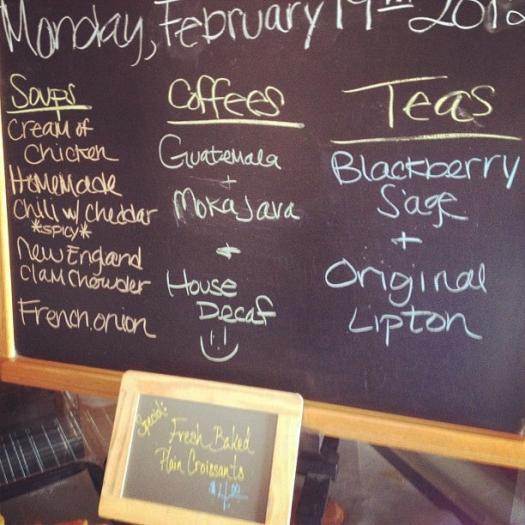 Monday, February 19th 2018
Soups
Cream of
Chicken
Homemade
Chili w/ Cheddar
*spicy*
New England
Clam Chowder
French onion
Coffees
Guatemala
+
Moka Java
+
House
Decaf
Teas
Blackberry
Sage
+
Original
Lipton
Special:
Fresh Baked
Plain Croissants